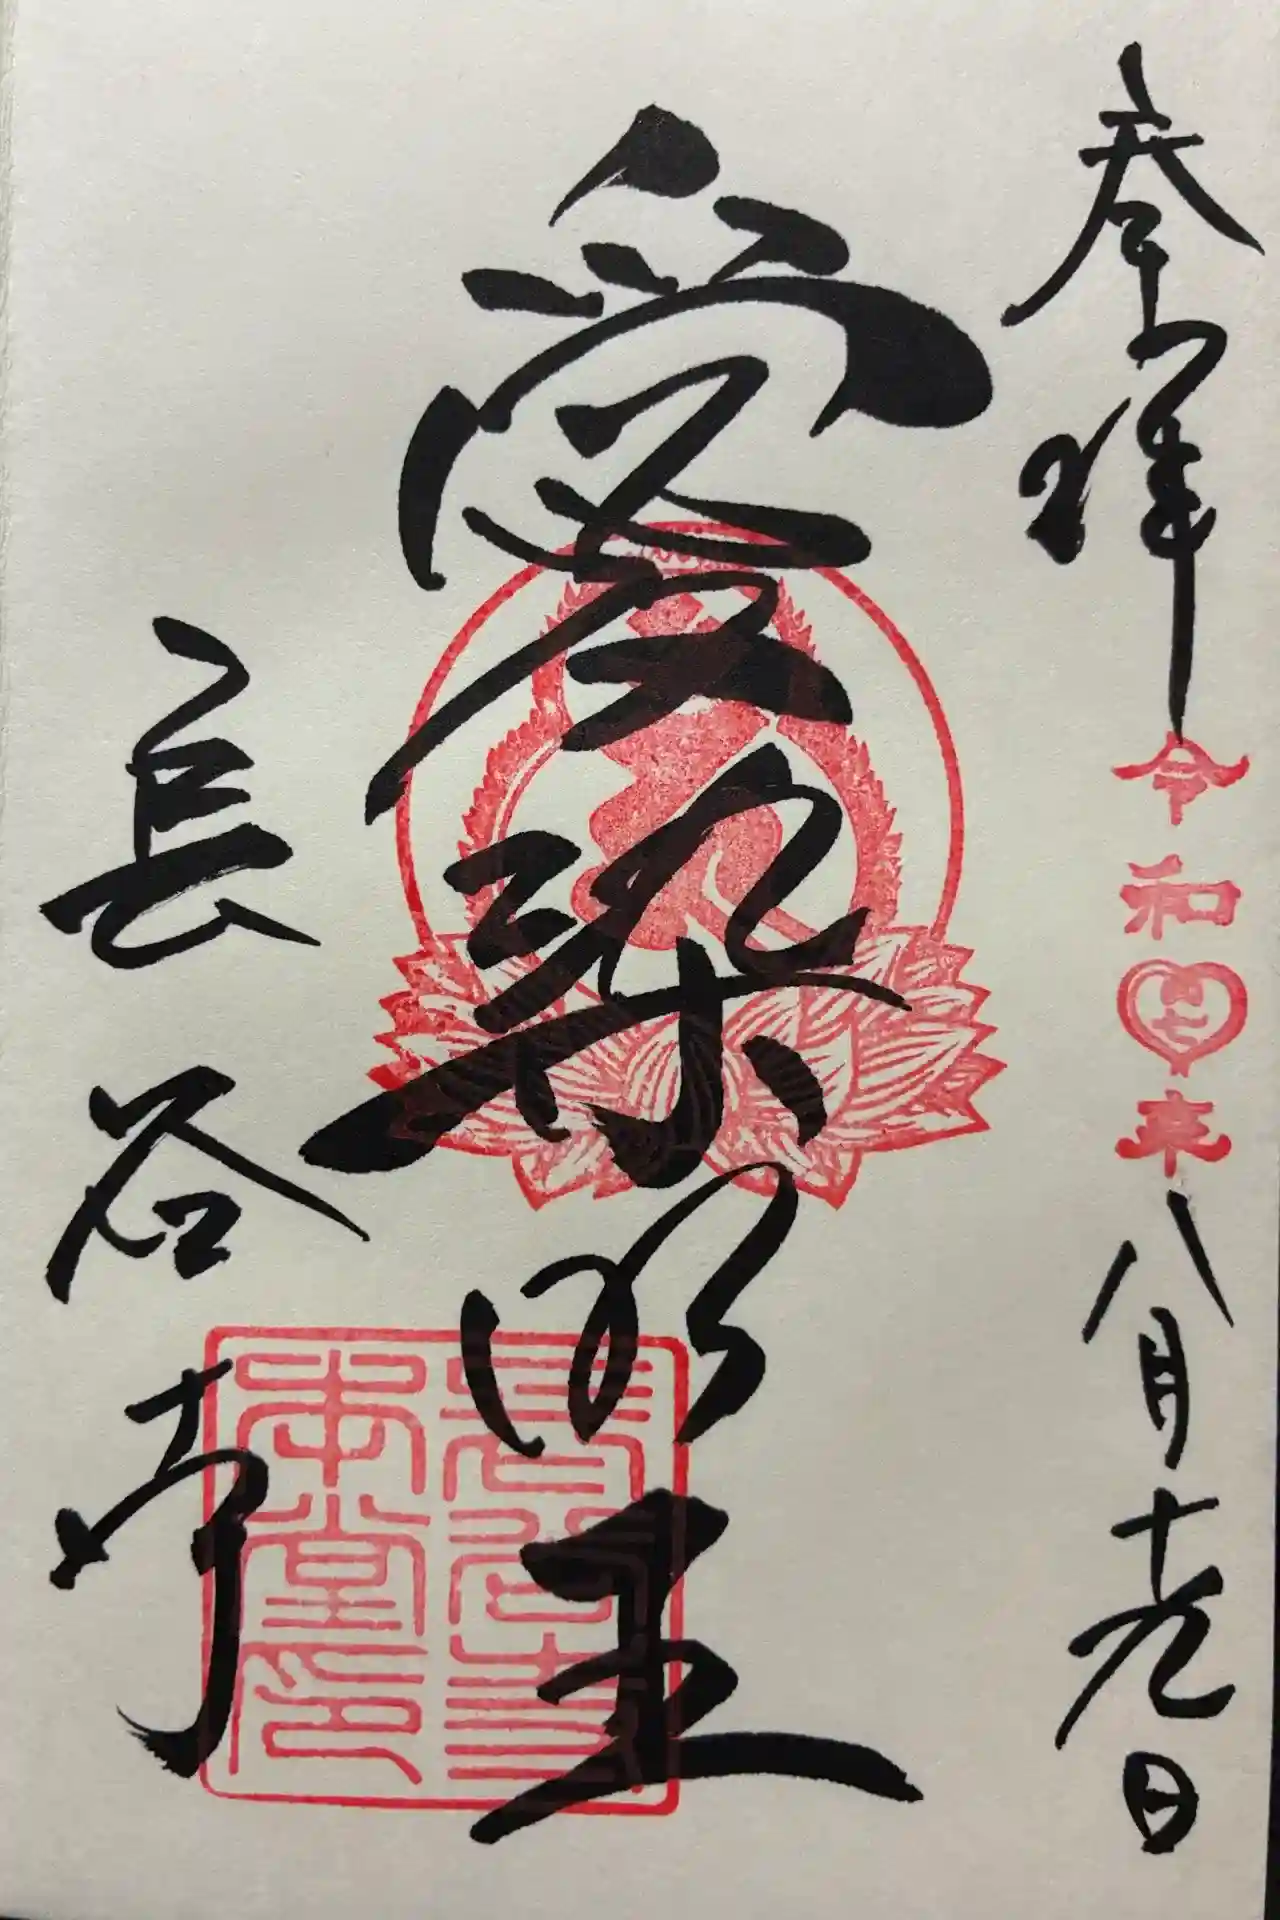 奉拝 令和七年八月十九日
愛染明王
長谷寺
長谷寺
本堂印